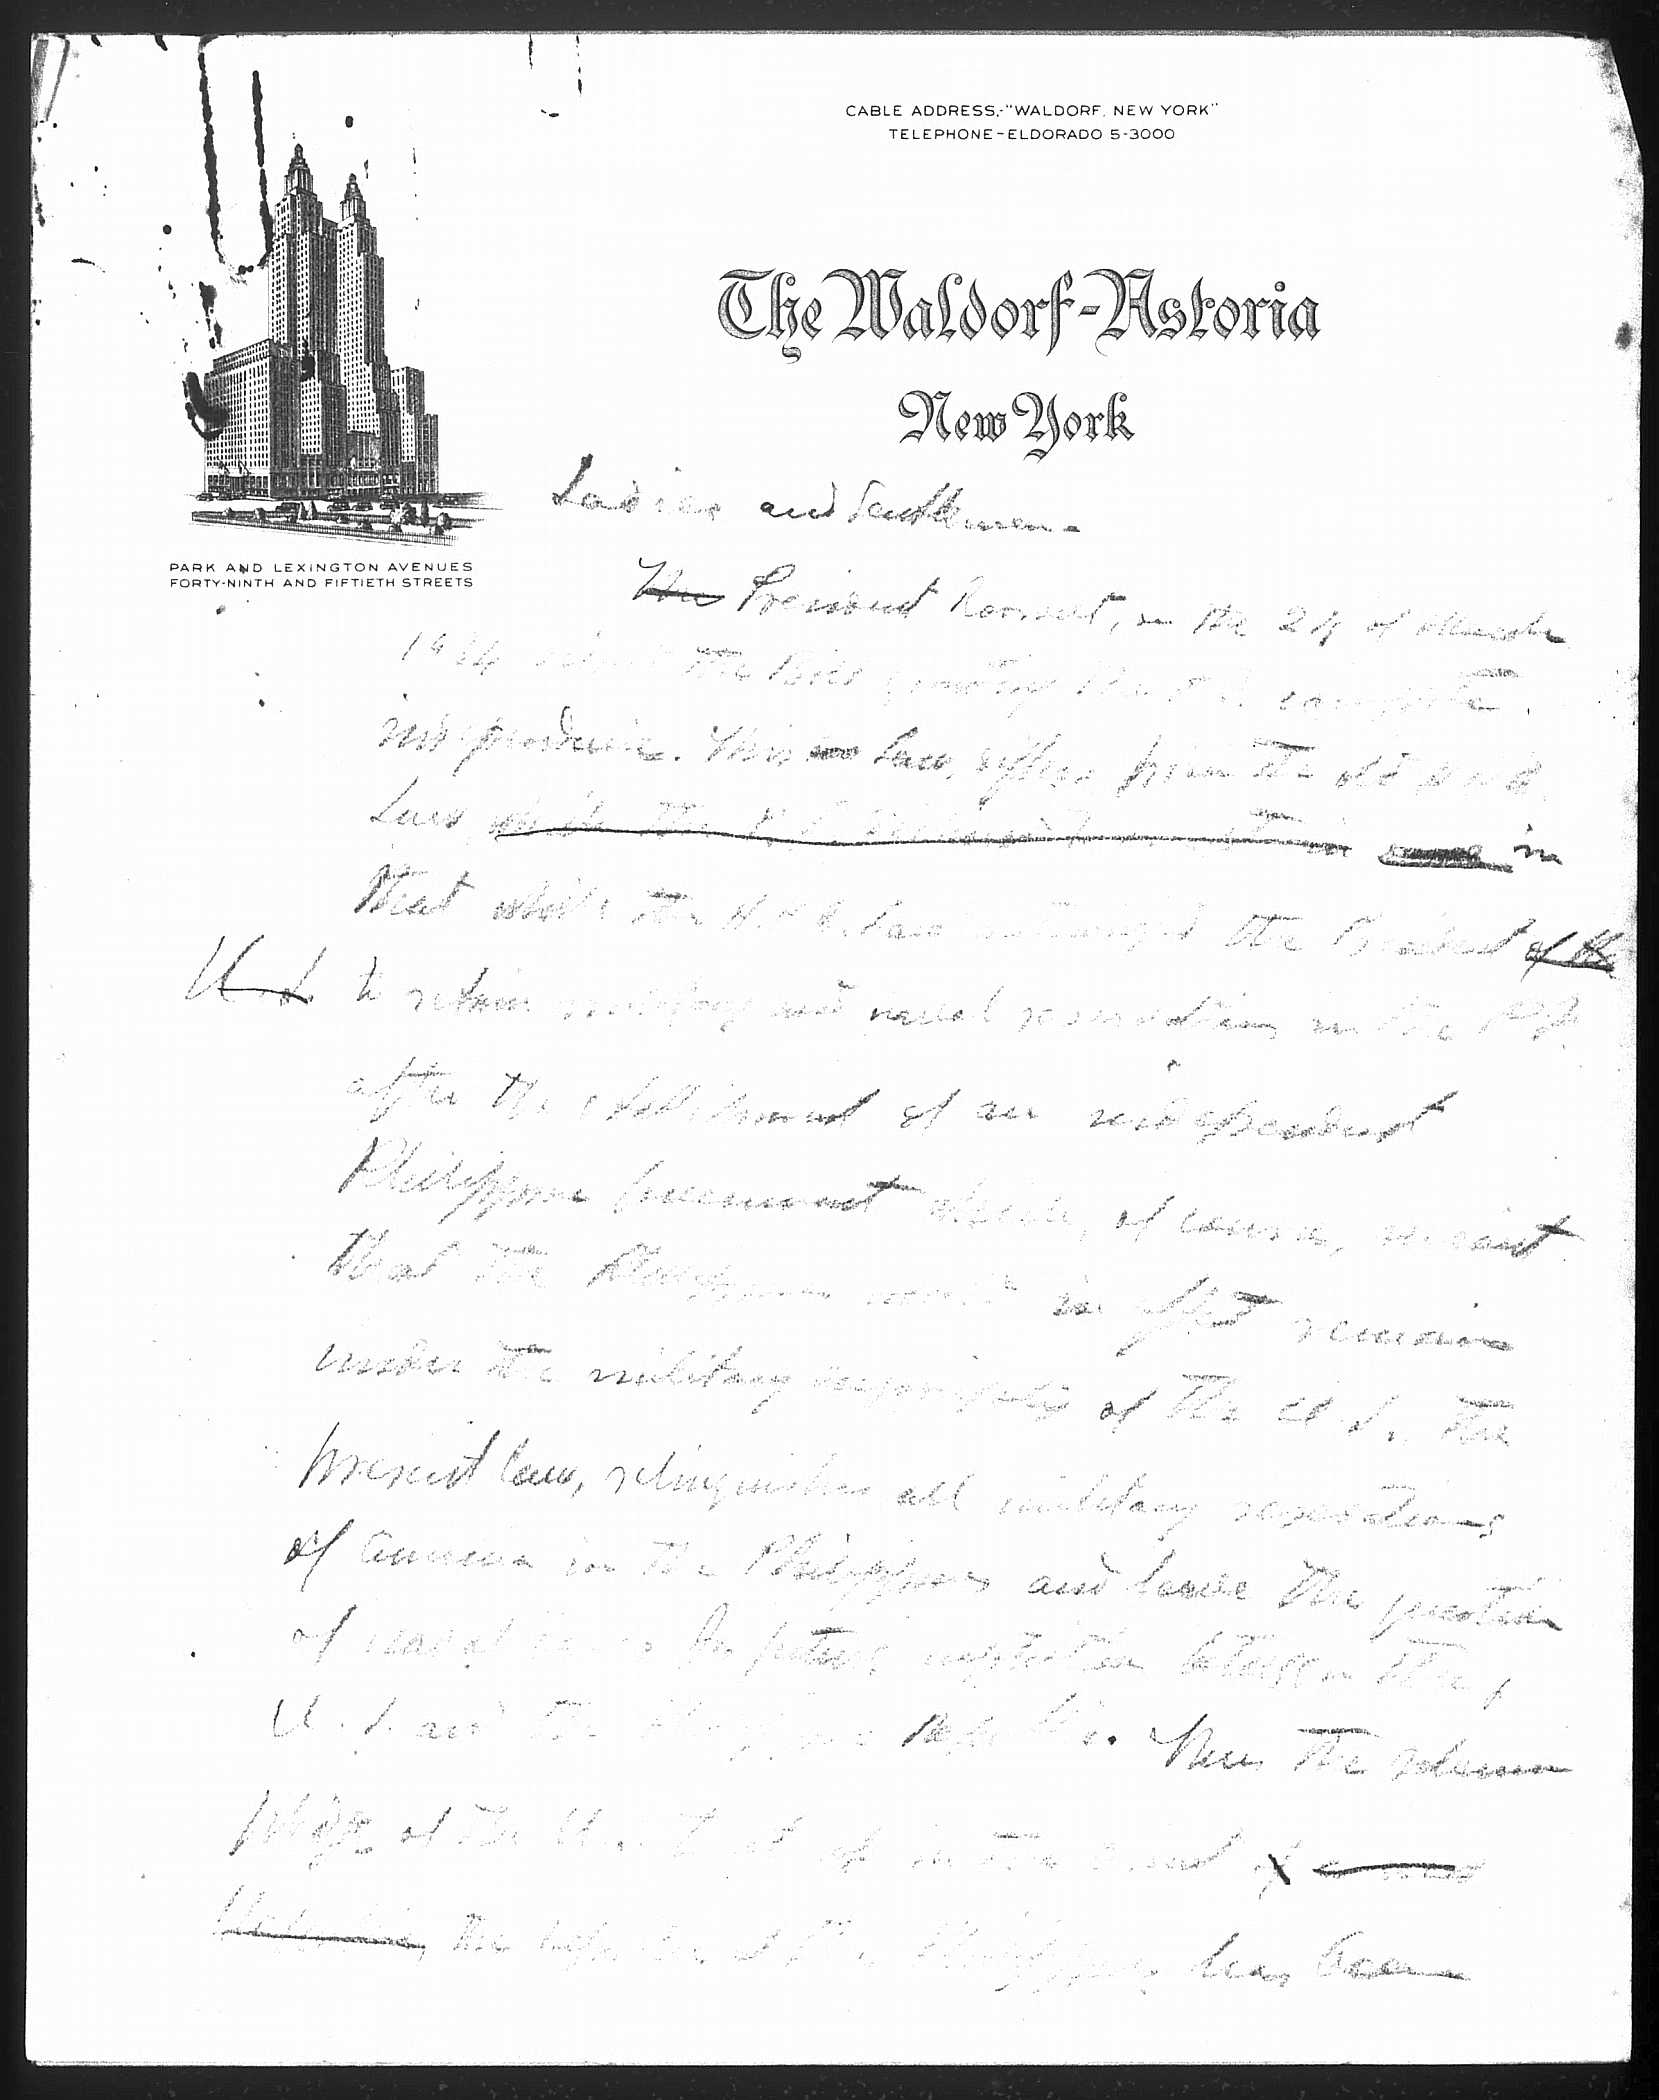 CABLE ADDRESS,-"WALDORF, NEW YORK"
TELEPHONE-ELDORADO 5-3000
The Waldorf-Astoria
New York
PARK AND LEXINGTON AVENUES
FORTY-NINTH AND FIFTIETH STREETS
Ladies and Gentlemen-
The President Roosevelt, on the 24 of March
1934 the Bill granting the P.I. complete
independence. This law, differs from the old
Law, while the in
that while the law the President of the
U.S. to retain military and naval reservations in the P.I.
after the establishment of an independent
Philippine Government which, of course, meant
that the Philippines would in effect remain
under the military of the U.S., the
present law, relinquishes all military reservations
of America in the Philippines and leave the question
of naval to future negotiation between the
U.S. and the Philippine Republic. Thus the solemn
pledge of the of
the of the Philippines has been